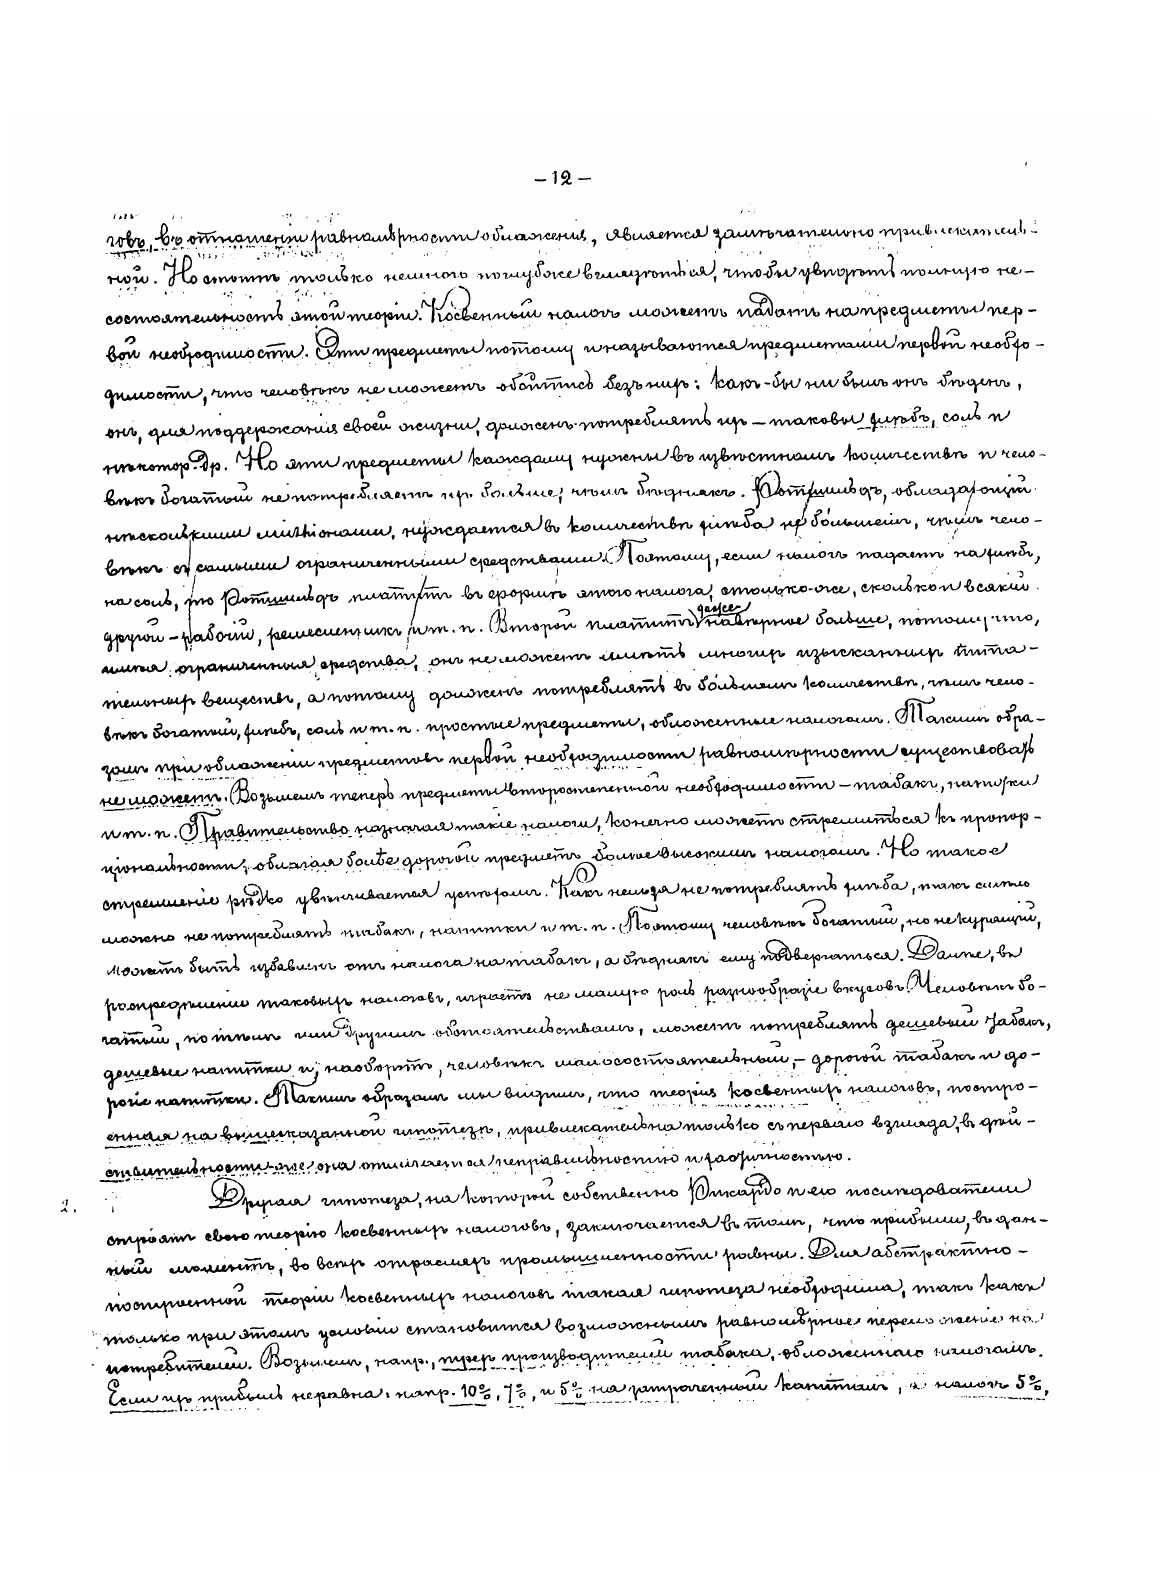 – 12 –
говъ, въ отношеніи равномѣрности обложенія, является замѣчательно привлекатель-
ной. Но стоитъ только немного поглубже вглядѣться, чтобы увидѣть полную не-
состоятельность этой теоріи. Косвенный налогъ можетъ падать на предметы пер-
вой необходимости. Эти предметы потому и называются предметами первой необхо-
димости, что человѣкъ не можетъ обойтись безъ нихъ: какъ-бы ни былъ онъ бѣденъ,
онъ, для поддержанія своей жизни, долженъ потреблять ихъ – таковы хлѣбъ, соль и
нѣкотор. др. Но эти предметы каждому нужны въ извѣстномъ количествѣ и чело-
вѣкъ богатый не потребляетъ ихъ больше, чѣмъ бѣднякъ. Ротшильдъ, обладающій
нѣсколькими милліонами, нуждается въ количествѣ хлѣба не бо́льшемъ, чѣмъ чело-
вѣкъ съ самыми ограниченными средствами. Поэтому, если налогъ падаетъ на хлѣбъ,
на соль, то Ротшильдъ платитъ въ формѣ этого налога, столько-же, сколько и всякій
другой – рабочій, ремесленникъ и т. п. Второй платитъ даже навѣрное больше, потому что,
имѣя ограниченныя средства, онъ не можетъ имѣть многихъ изысканныхъ пита-
тельныхъ веществъ, а потому долженъ потреблять въ бо́льшемъ количествѣ, чѣмъ чело-
вѣкъ богатый, хлѣбъ, соль и т. п. простые предметы, обложенные налогомъ. Такимъ обра-
зомъ при обложеніи предметовъ первой необходимости равномѣрности существовать
не можетъ. Возьмемъ теперь предметы второстепенной необходимости – табакъ, напитки
и т. п. Правительство назначая такіе налоги, конечно можетъ стремиться къ пропор-
ціональности, облагая болѣе дорогой предметъ болѣе высокимъ налогомъ. Но такое
стремленіе рѣдко увѣнчивается успѣхомъ. Какъ нельзя не потреблять хлѣба, такъ смѣло
можно не потреблять табакъ, напитки и т. п. Поэтому человѣкъ богатый, но не курящій,
можетъ быть избавленъ отъ налога на табакъ, а бѣднякъ ему подвергаться. Далѣе, въ
распредѣленіи таковыхъ налоговъ, играетъ не малую роль разнообразіе вкусовъ. Человѣкъ бо-
гатый, по тѣмъ или другимъ обстоятельствамъ, можетъ потреблять дешевый табакъ,
дешевые напитки и, наоборотъ, человѣкъ малосостоятельный, – дорогой табакъ и до-
рогіе напитки. Такимъ образомъ мы видимъ, что теорія косвенныхъ налоговъ, постро-
енная на вышесказанной гипотезѣ, привлекательна только съ перваго взгляда, въ дѣй-
ствительности-же, она отличается неправильностію и
2. Другая гипотеза, на которой собственно Рикардо и его послѣдователи
строятъ свою теорію косвенныхъ налоговъ, заключается въ томъ, что прибыли, въ дан-
ный моментъ, во всѣхъ отрасляхъ промышленности равны. Для абстрактно-
построенной теоріи косвенныхъ налоговъ такая гипотеза необходима, такъ какъ
только при этомъ условіи становится возможнымъ равномѣрное переложеніе на
потребителей. Возьмемъ, напр., трехъ производителей табака, обложеннаго налогомъ.
Если ихъ прибыль неравна, напр. 10%, 7%, и 5% на затраченный капиталъ, а налогъ 5%,